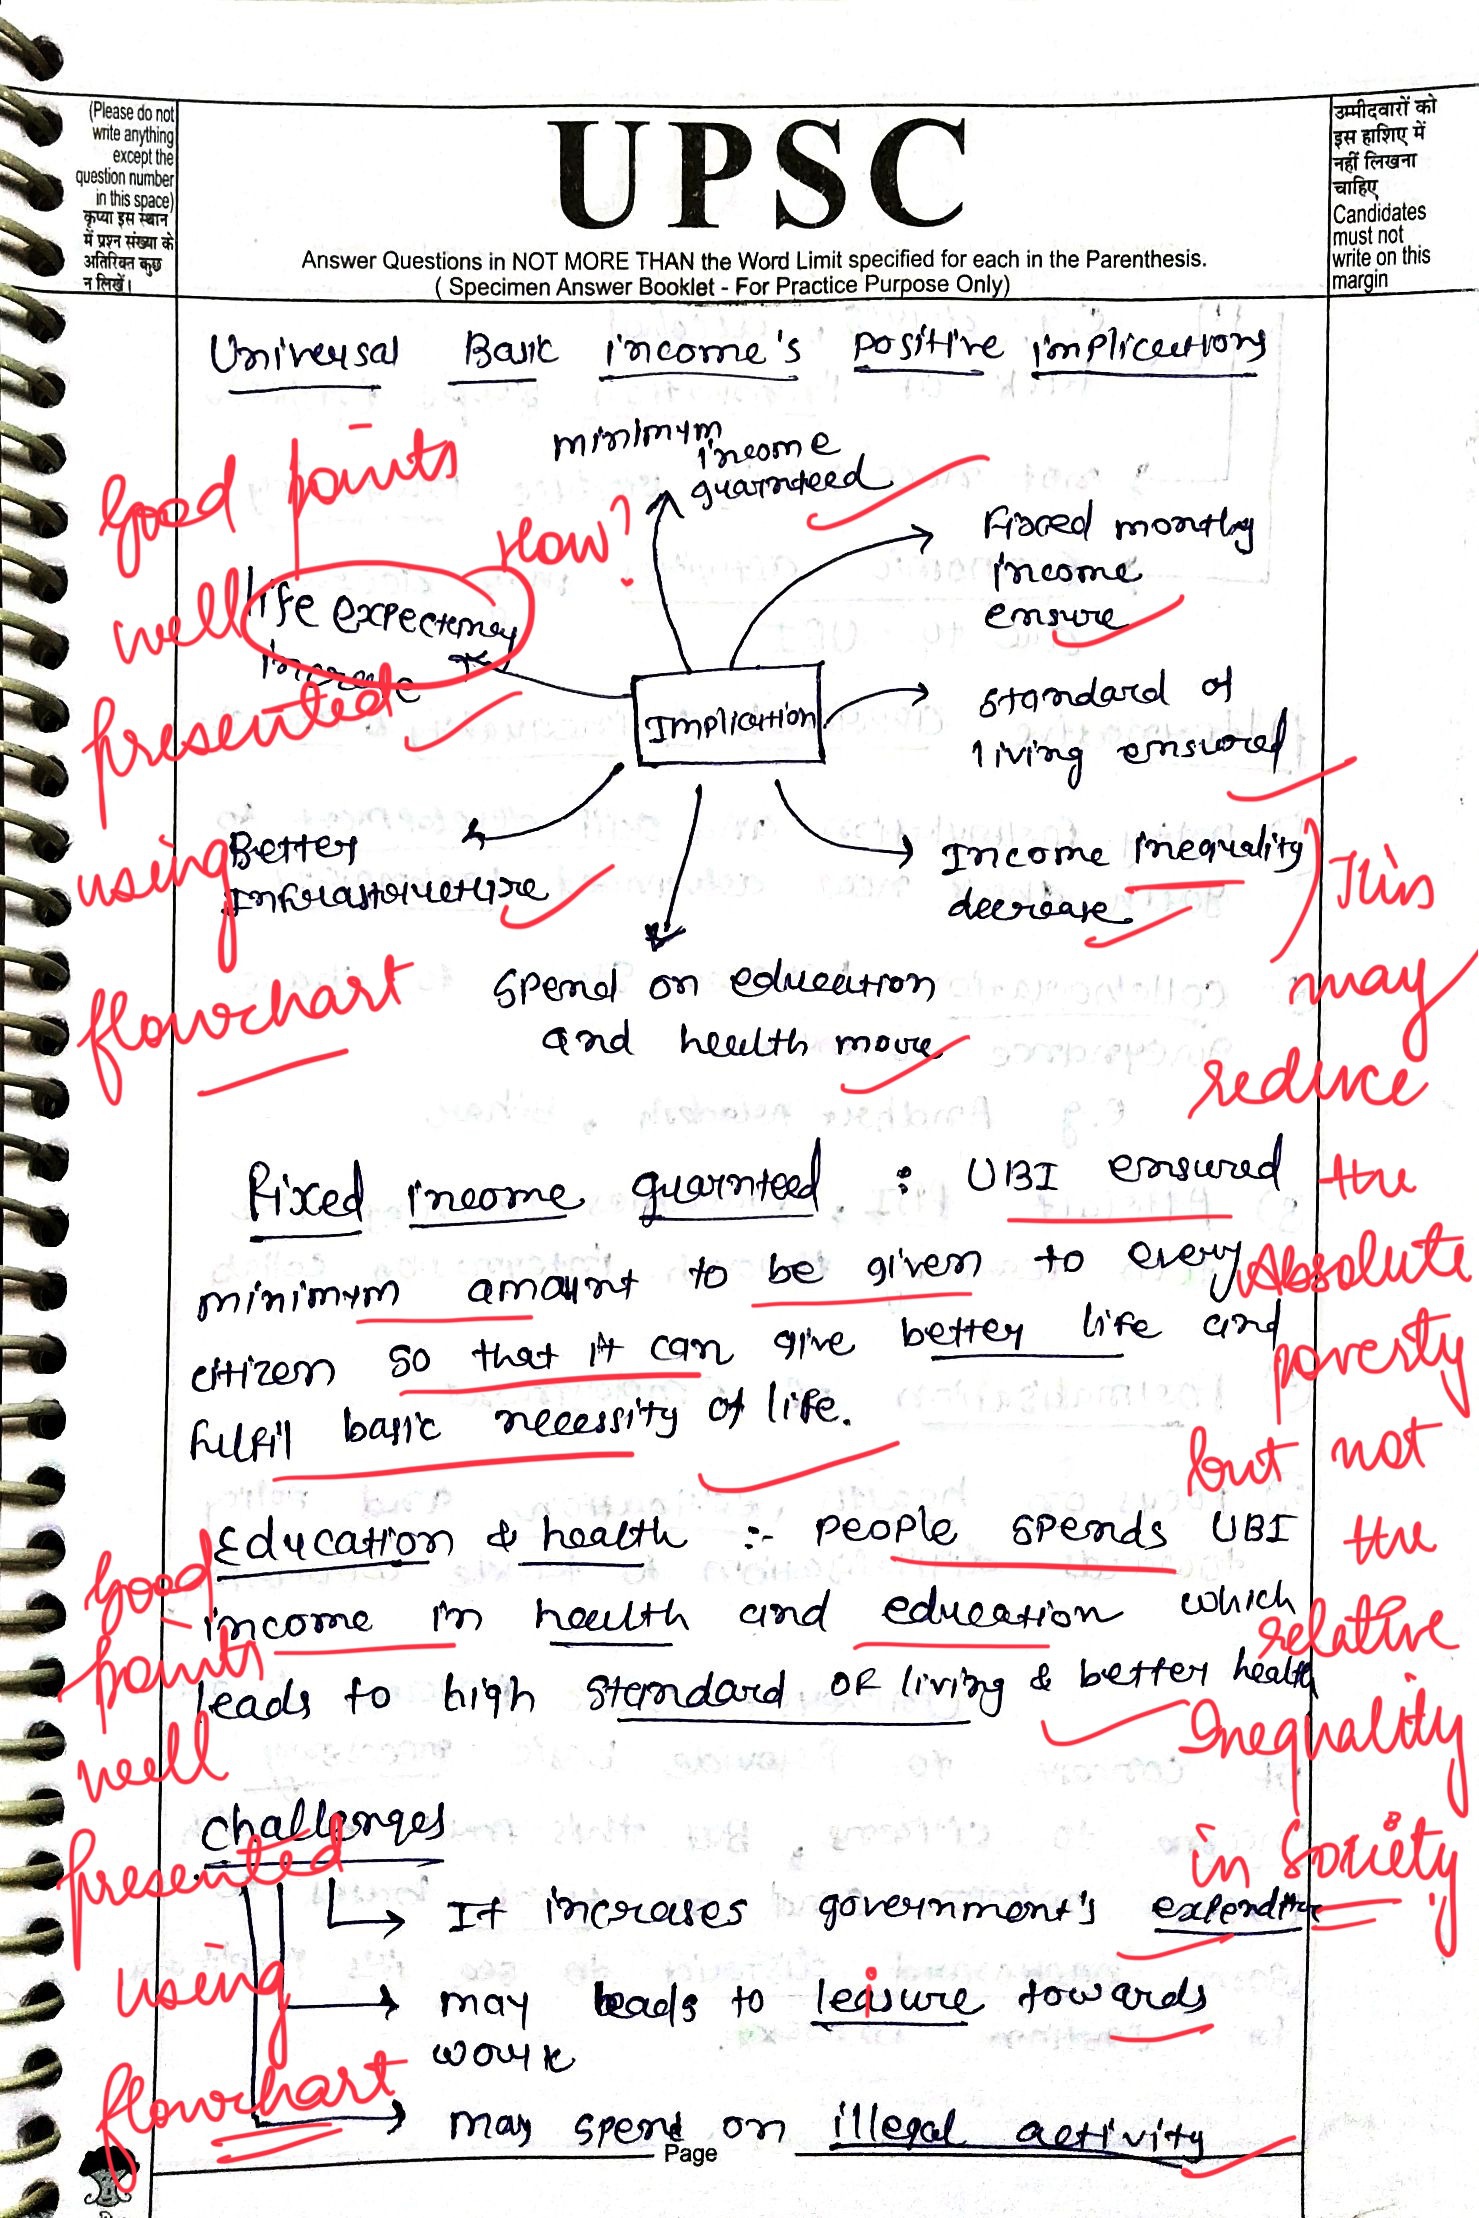 (Please do not
write anything
except the
question number
in this space)
कृप्या इस स्थान
में प्रश्न संख्या के
अतिरिक्त कुछ
न लिखें।
UPSC
Answer Questions in NOT MORE THAN the Word Limit specified for each in the Parenthesis.
( Specimen Answer Booklet - For Practice Purpose Only)
उम्मीदवारों को
इस हाशिए में
नहीं लिखना
चाहिए
Candidates
must not
write on this
margin
Universal Basic income's positive implications
minimum
income
guarnteed
Fixed monthly
income
ensure
life expectency
increase
How?
Good points
well
presented
using
flowchart
Implication
standard of
living ensured
Better
Infrastructure
Income inequality
decrease
Spend on education
and health more
This
may
reduce
the
Absolute
poverty
but not
the
relative
Inequality
in Society
Fixed income guarnteed : UBI ensured
minimum amount to be given to every
citizen so that it can give better life and
fulfil basic necessity of life.
Education & health :- People spends UBI
income in health and education which
leads to high standard of living & better health
Good
points
well
presented
using
flowchart
Challenges
It increases government's expenditure
may leads to leisure towards
work
may spend on illegal activity
Page